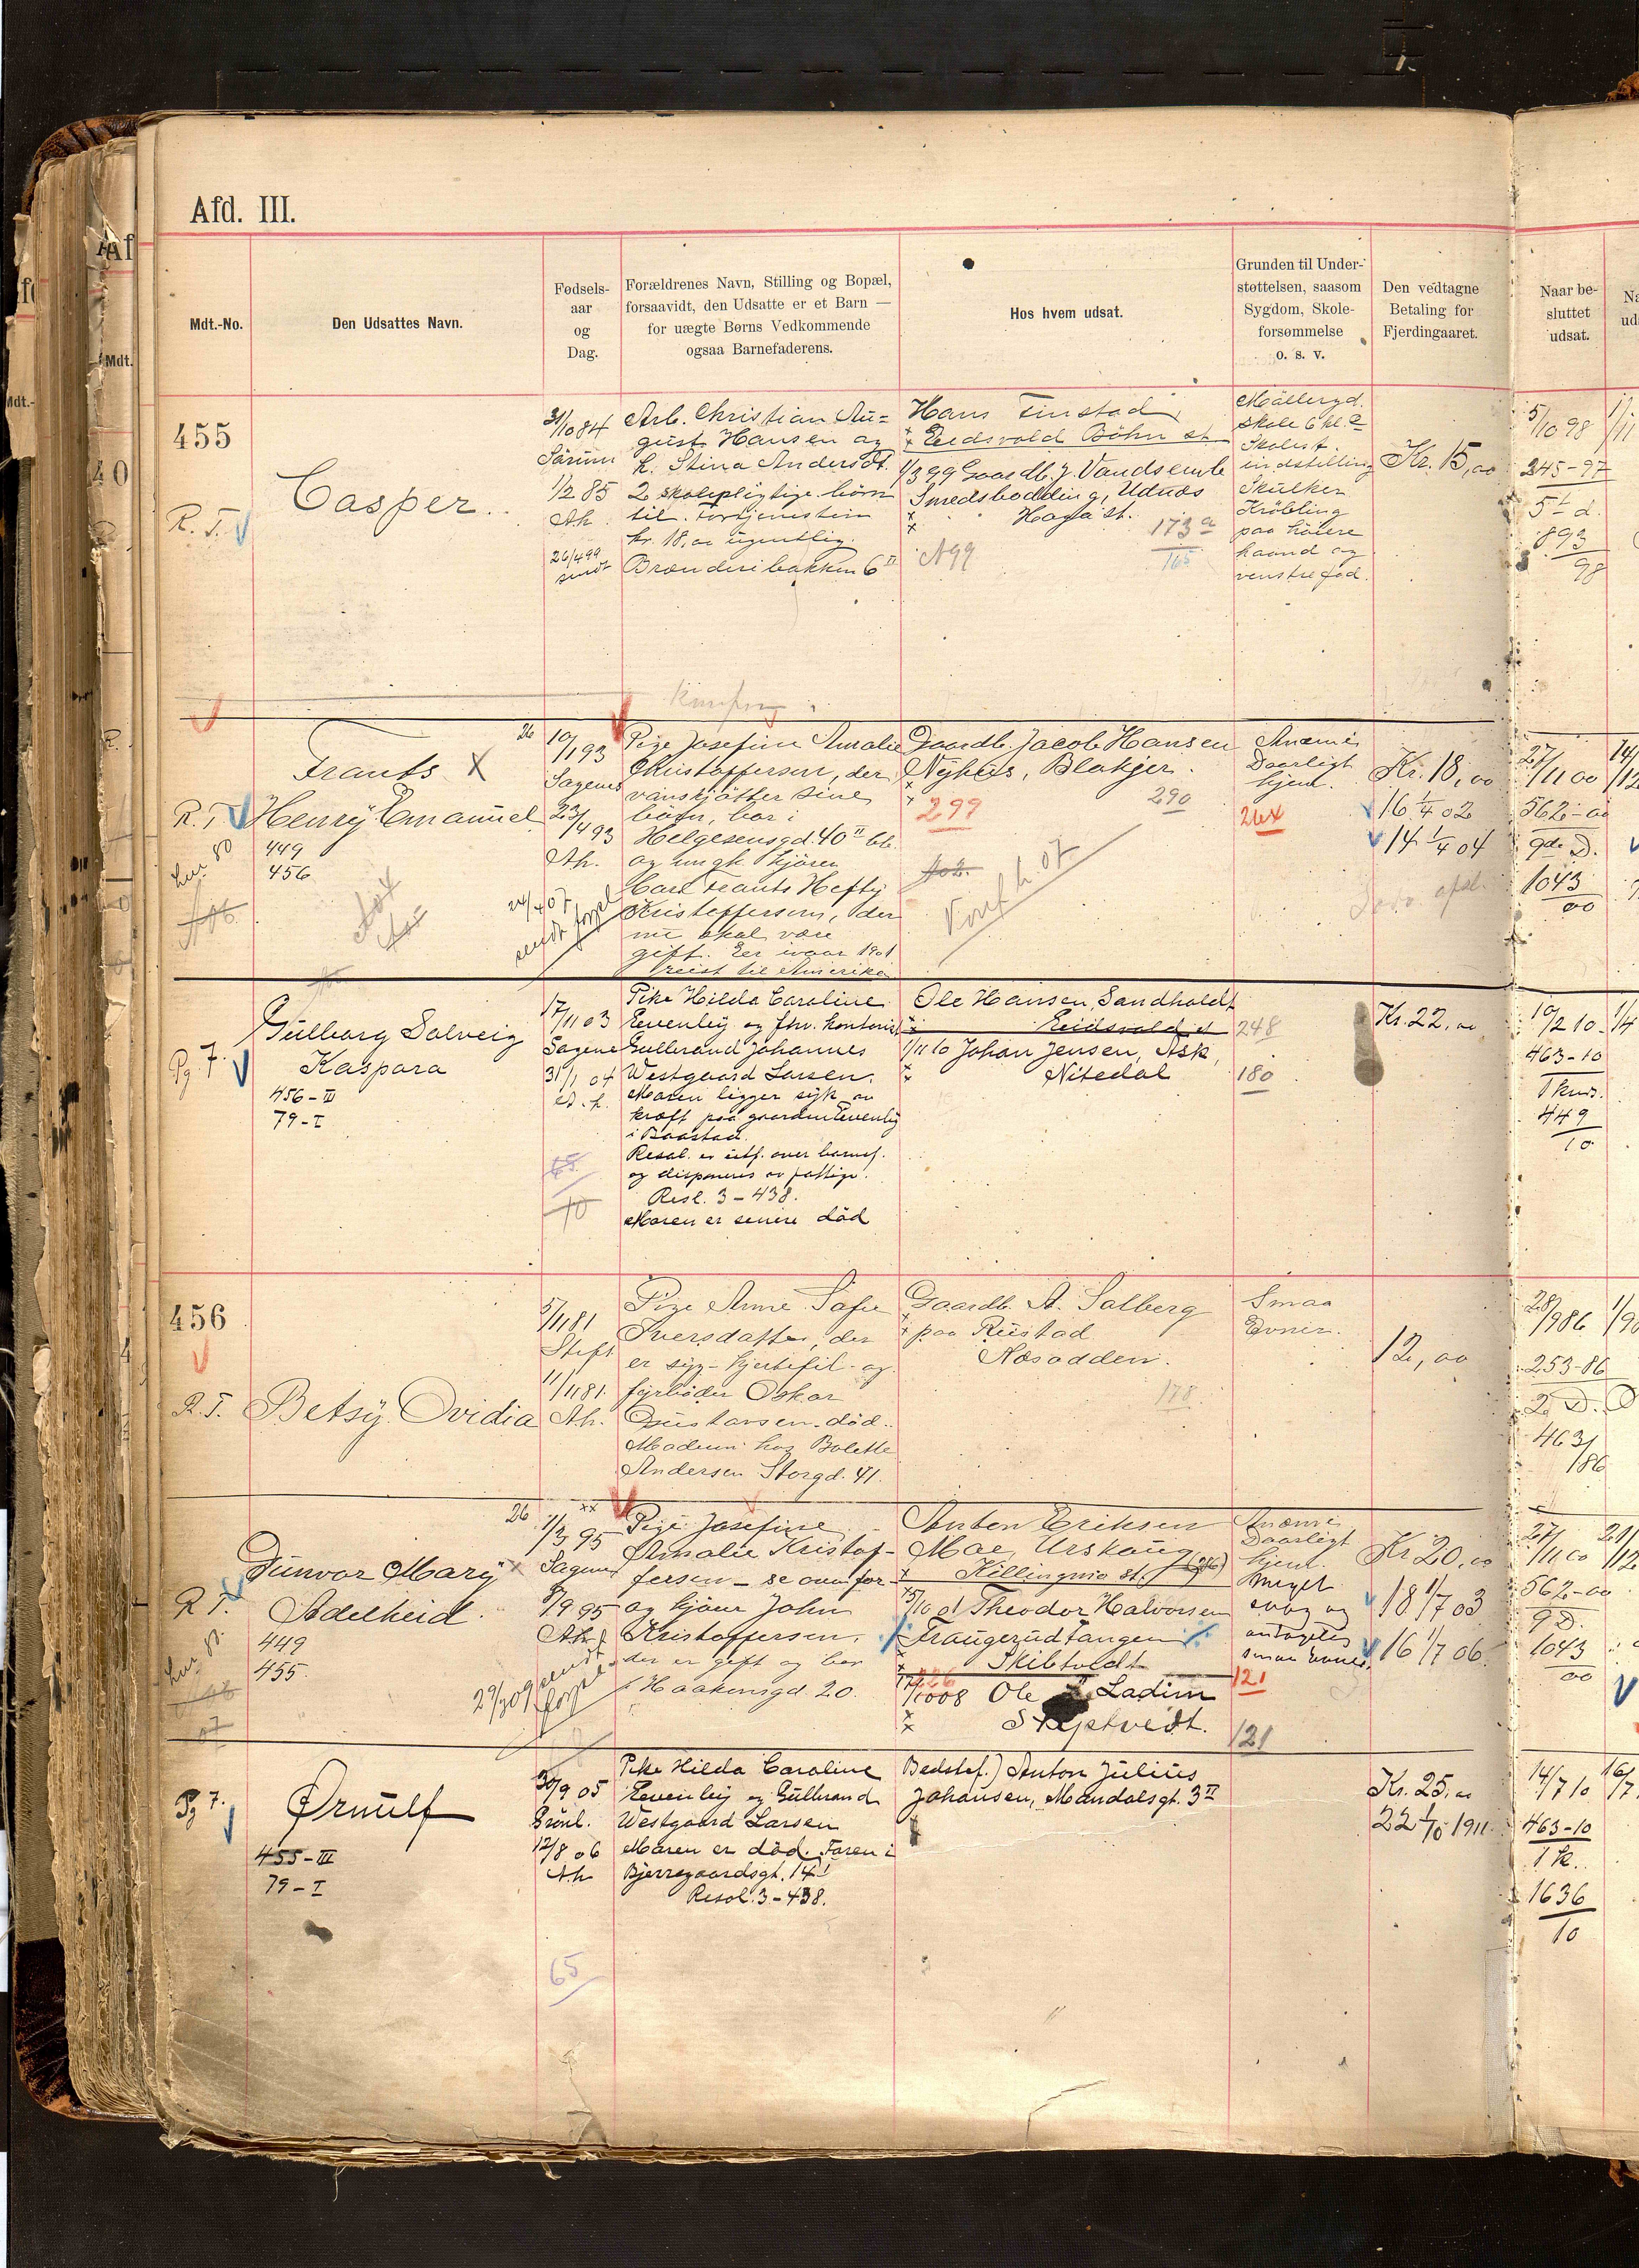 Afd. III.
Mdt.-No.
Den Udsattes Navn.
Fødsels-
aar
og
Dag.
Forældrenes Navn, Stilling og Bopæl,
forsaavidt, den Udsatte er et Barn —
for uægte Børns Vedkommende
ogsaa Barnefaderens.
Hos hvem udsat.
Grunden til Under-
støttelsen, saasom
Sygdom, Skole-
forsømmelse
o. s. v.
Den vedtagne
Betaling for
Fjerdingaaret.
Naar be-
sluttet
udsat.
455
R. T.
Casper.
31/10 84
Sørum
1/2 85
Ah.
26/4 99
sendt
Arb. Christian Au=
gust Hansen og
h. Stina Andersdt.
2 skolepligtige børn
til. Fortjenesten
kr. 18,00 ugentlig.
Brænderibakken 6 II
Hans Finstad
Eidsvold Bøhn st.
1/3 99 Gaardb. J. Vandsemb
Smedsbodding, Udnæs
Haga st.
173 a
165
A 99
Møllergd.
skole 6 kl.
Skolest.
indstilling
Skulker
Krøbling
paa høire
haand og
venstre fod.
Kr. 15,00
5/10 98
245-97
5te d.
893
98
Frants X
Henry Emanuel
R. T.
449
456
26
10/1 93
Sagene
23/4 93
Ah.
24/4 07
sendt forpl
Pige Josefine Amalie
Christoffersen, der
vanskjøtter sine
børn, bor i
Helgesensgd. 40 II
og ungk. kjører
Carl Frants Hefty
Kristoffersen, der
nu skal være
gift. Er ivaar 1901
reist til Amerika
Gaardb. Jacob Hansen
Nyhus, Blakjer.
299
290
Konf. h. 07
Anæmi
Daarligt
hjem.
264
Kr. 18,00
16 1/4 02
14 1/4 04
27/11 00
562-00
9de D.
1043
00
Pg 7.
Gulborg Solveig
Kaspara
456-III
79-I
17/11 03
Sagene
31/1 04
Pike Hilda Caroline
Evenby og fhv. kontorist
Gulbrand Johannes
Westgaard Larsen.
Moren ligger syk av
kræft paa gaarden Evenby
i Baastad.
Resol. er utf. over barnef.
og disponeres av fattigv.
Resl. 3-438.
Moren er senere død
Ole Hansen Sandholdt
Eidsvold st
1/11 10 Johan Jensen, Ask,
Nitedal
248
180
Kr. 22,00
10/2 10
463-10
449
10
456
R. T.
Betsy Ovidia
5/11 81
Stift
11/11 81.
Ah.
Pige Anne Sofie
Iversdatter, der
er syg-hjertefeil-og
fyrbøder Oskar
Gustavsen-død.
Moderen hos Bolette
Andersen Storgd. 41.
Gaardb. A. Solberg
paa Rustad
Næsodden.
178
Smaa
Evner.
12,00
28/9 86
253-86
2 D.
463/
186
Gunvor Mary X
Adelheid.
R T.
449
455.
26
1/3 95
Sagene
8/9 95
Ah.
29/3 09 sendt
forpl.
Pige Josefine
Amalie Kristof-
fersen - se ovenfor-
og kjører John
Kristoffersen,
der er gift og bor
Haakonsgd. 20.
Anton Eriksen
Moe, Urskoug
Killingmo st.
Theodor Halvorsen
Fraugerudtangen
Skibtvedt
1/10 08 Ole Ladim
Skiptvedt.
121
121
Anæmi
Daarligt
hjem.
Meget
svag og
antagelig
smaa evner.
Kr 20,00
18 1/7 03
16 1/7 06.
27/11 00
562-00
9 D.
1043
00
Pg 7.
Ørnulf
455-III
79-I
30/9 05
Grønl.
12/8 06
Ah
65
Pike Hilda Caroline
Evenby og Gulbrand
Westgaard Larsen
Moren er død. Faren i
Bjerregaardsgt. 14 I
Resol. 3-438.
Bedstef.) Anton Julius
Johansen, Mandalsgt. 3 II
Kr. 25,00
22 1/10 1911.
14/7 10
463-10
1 k.
1636
10